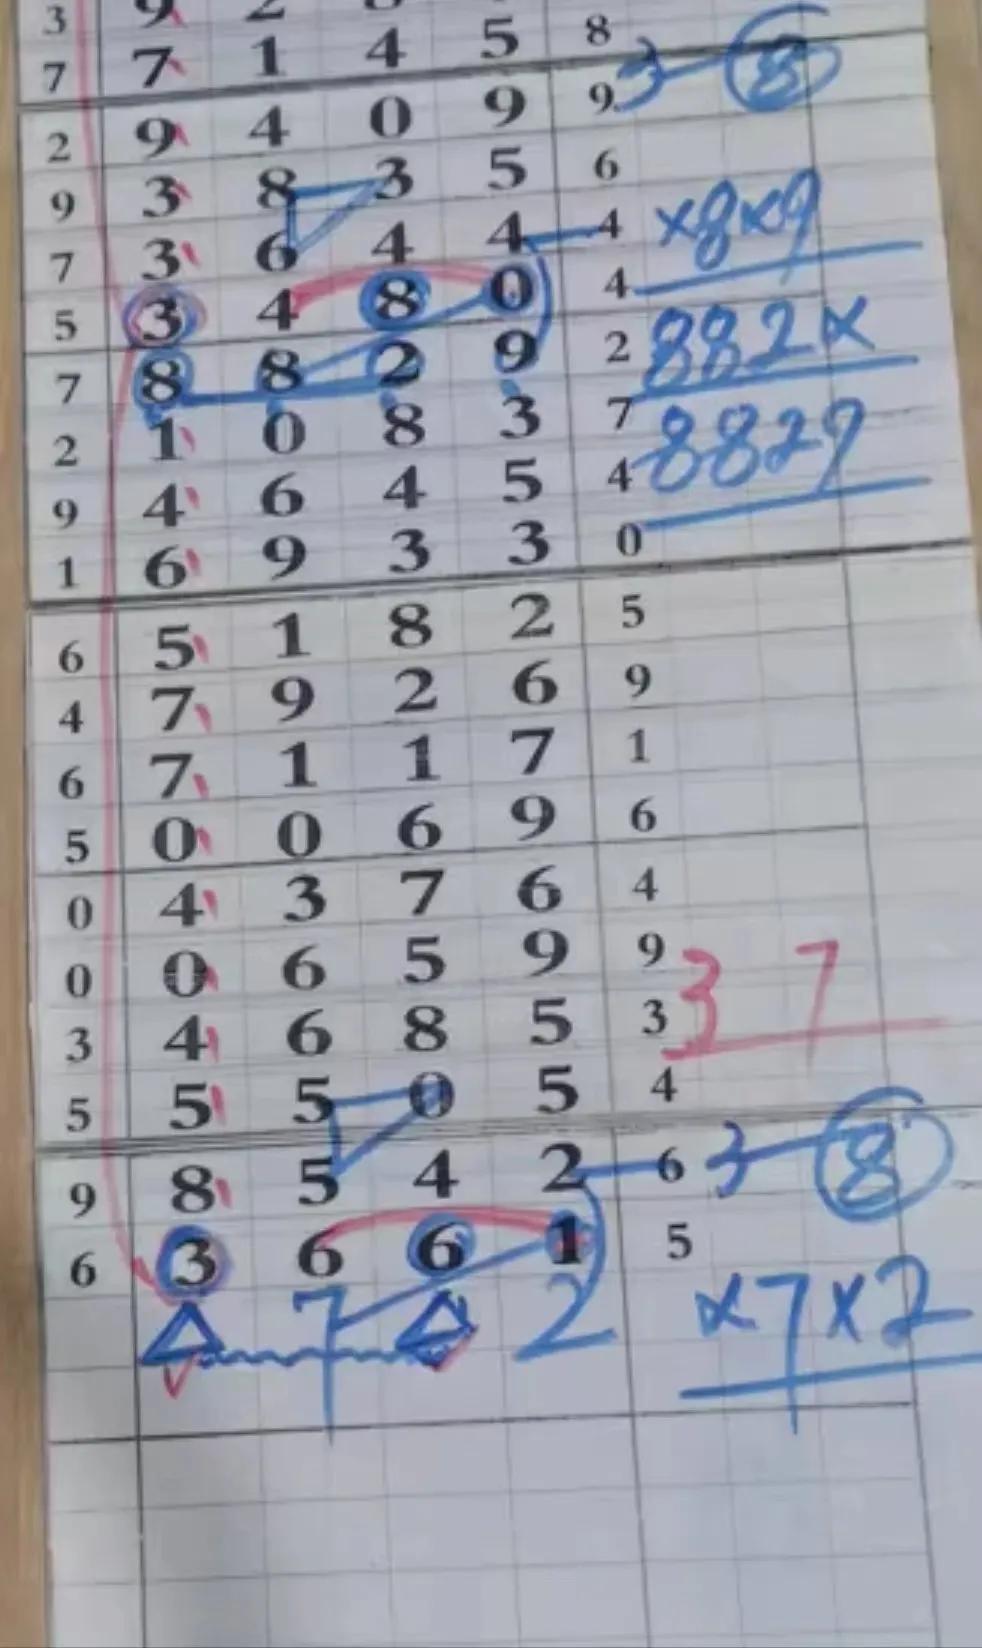 3 9 2
7 7 1 4 5 8
3 8
2 9 4 0 9 9
9 3 8 3 5 6
7 3 6 4 4 4 ×8×9
5 3 4 8 0 4
7 8 8 2 9 2 882×
2 1 0 8 3 7
9 4 6 4 5 4 8829
1 6 9 3 3 0
6 5 1 8 2 5
4 7 9 2 6 9
6 7 1 1 7 1
5 0 0 6 9 6
0 4 3 7 6 4
0 0 6 5 9 9
3 4 6 8 5 3 3 7
5 5 5 0 5 4
9 8 5 4 2 6 3 8
6 3 6 6 1 5
7 2 ×7×2